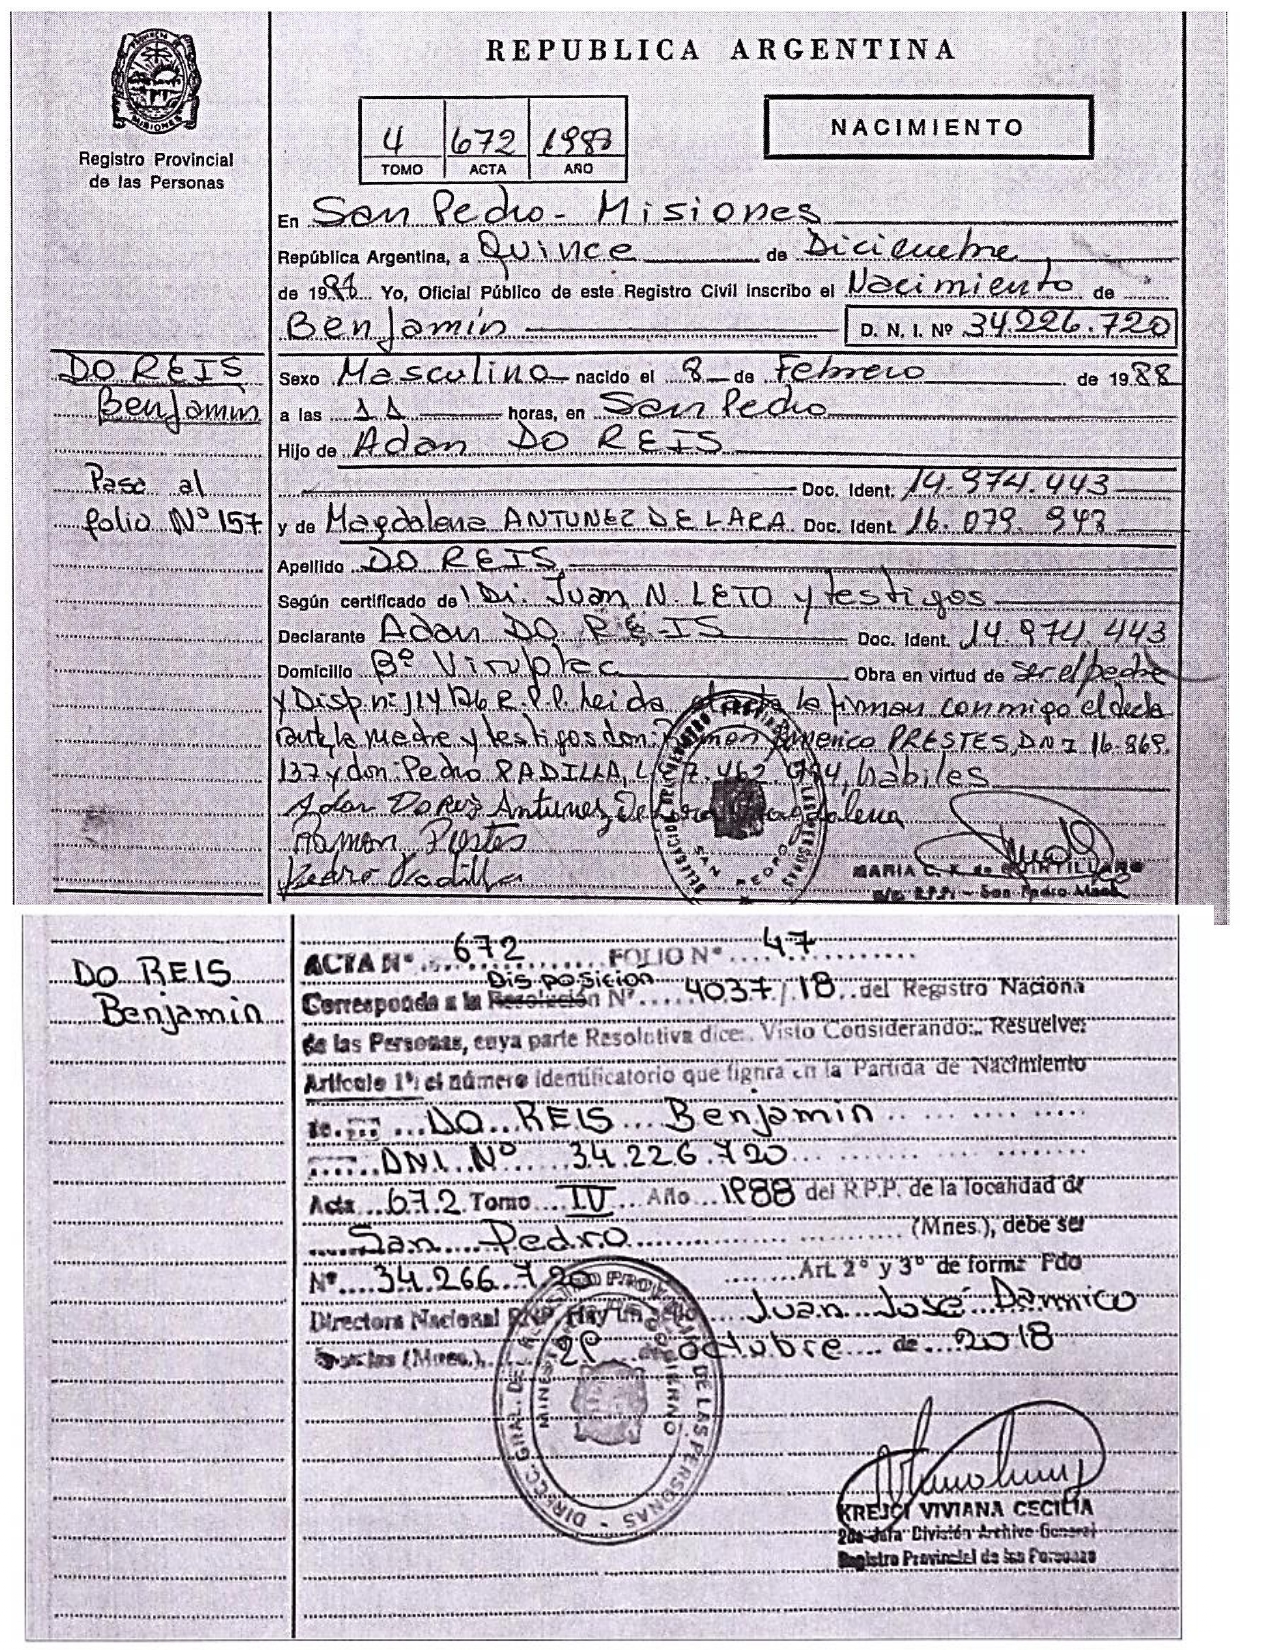 REPUBLICA ARGENTINA
PROVINCIA DE MISIONES
Registro Provincial
de las Personas
4 672 1988
TOMO ACTA AÑO
NACIMIENTO
En San Pedro - Misiones
República Argentina, a Quince de Diciembre
de 1988 Yo, Oficial Público de este Registro Civil inscribo el Nacimiento de
Benjamín D. N. I. Nº 34.226.720
DO REIS
Benjamín
Pasa al
folio Nº 157
Sexo Masculino nacido el 8 de Febrero de 1988
a las 11 horas, en San Pedro
Hijo de Adan DO REIS
Doc. Ident. 14.974.443
y de Magdalena ANTUNEZ DE LARA Doc. Ident. 16.079.943
Apellido DO REIS
Según certificado de Dr. Juan N. LETO y testigos
Declarante Adan DO REIS Doc. Ident. 14.974.443
Domicilio Bº Obra en virtud de ser el padre
y Disp. nº 114/76 R.P.P. Leida el acta la firman conmigo el decla
rante, la madre y testigos don: Ramon Americo PRESTES, DNI 16.869.
137 y don: Pedro PADILLA, L. 7.462. hábiles
Adan Do Reis Antunes De Lara Magdalena
Ramon Prestes
Pedro Padilla
DELEGACION REGISTRO PROVINCIAL DE LAS PERSONAS
SAN PEDRO
MARIA C. K. de QUINTILLANO
R.P.P. - San Pedro Mnes.
DO REIS
Benjamin
ACTA Nº 672 FOLIO Nº 47
Disposición
Corresponde a la Resolución Nº 4037/18 del Registro Naciona
de las Personas, cuya parte Resolutiva dice: Visto Considerando: Resuelve:
Artículo 1º: el número identificatorio que figura en la Partida de Nacimiento
de DO REIS Benjamin
DNI Nº 34.226.720
Acta 672 Tomo IV Año 1988 del R.P.P. de la localidad de
San Pedro (Mnes.), debe ser
Nº 34.266.720 Art. 2º y 3º de forma Fdo
Directora Nacional RNP Hay un sello Juan José Damico
Posadas (Mnes.), 29 de octubre de 2018
DIRECC. GRAL. DEL REGISTRO PROVINCIAL DE LAS PERSONAS
MINISTERIO DE GOBIERNO
KREJCI VIVIANA CECILIA
2da Jefa División Archivo General
Registro Provincial de las Personas